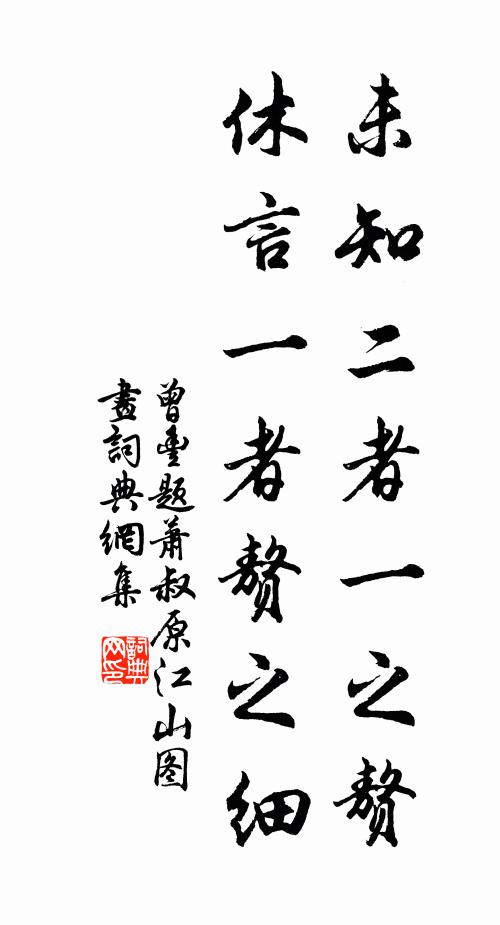 未知二者一之赘
休言一者赘之细
曾豐题萧叔原江山图
畫詞典網集
詞典网印